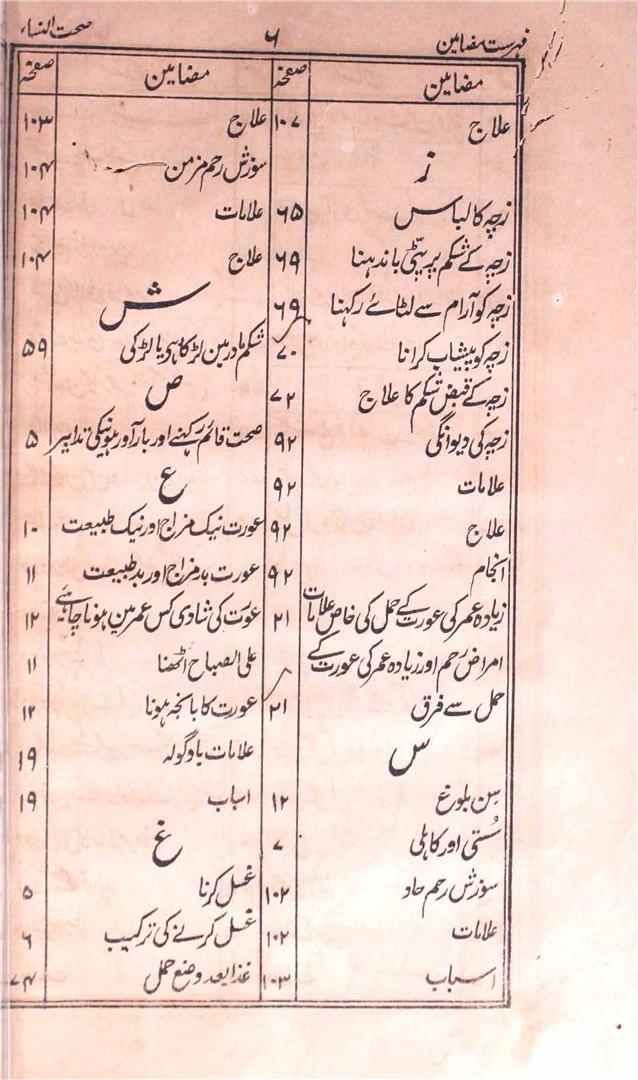 فہرست مضامین ۶ صحت النساء
مضامین صفحہ
علاج ۱۰۷
ز
زچہ کا لباس ۶۵
زچہ کے شکم پر پٹی باندہنا ۶۹
زچہ کو آرام سے لٹائے رکہنا ۶۹
زچہ کو پیشاب کرانا ۷۰
زچہ کے قبض شکم کا علاج ۷۲
زچہ کی دیوانگی ۹۲
علامات ۹۲
علاج ۹۲
انجام ۹۲
زیادہ عمر کی عورت کے حمل کی خاص علامات ۲۱
امراض رحم اور زیادہ عمر کی عورت کے
حمل سے فرق ۲۱
س
سن بلوغ ۱۲
سُستی اور کاہلی ۷
سوزش رحم حاد ۱۰۲
علامات ۱۰۲
اسباب ۱۰۳
مضامین صفحہ
علاج ۱۰۳
سوزش رحم مزمن ۱۰۴
علامات ۱۰۴
علاج ۱۰۴
ش
شکم مادر مین لڑکا ہی یا لڑکی ۵۹
ص
صحت قائم رکہنے اور بارآور ہونیکی تدابیر ۵
ع
عورت نیک مزاج اور نیک طبیعت ۱۰
عورت بد مزاج اور بد طبیعت ۱۱
عورت کی شادی کس عمر مین ہونا چاہیے ۱۲
علی الصباح اٹھنا ۱۱
عورت کا بانجہ ہونا ۱۲
علامات باؤگولہ ۱۹
اسباب ۱۹
غ
غسل کرنا ۵
غسل کرنے کی ترکیب ۶
غذا بعد وضع حمل ۷۴